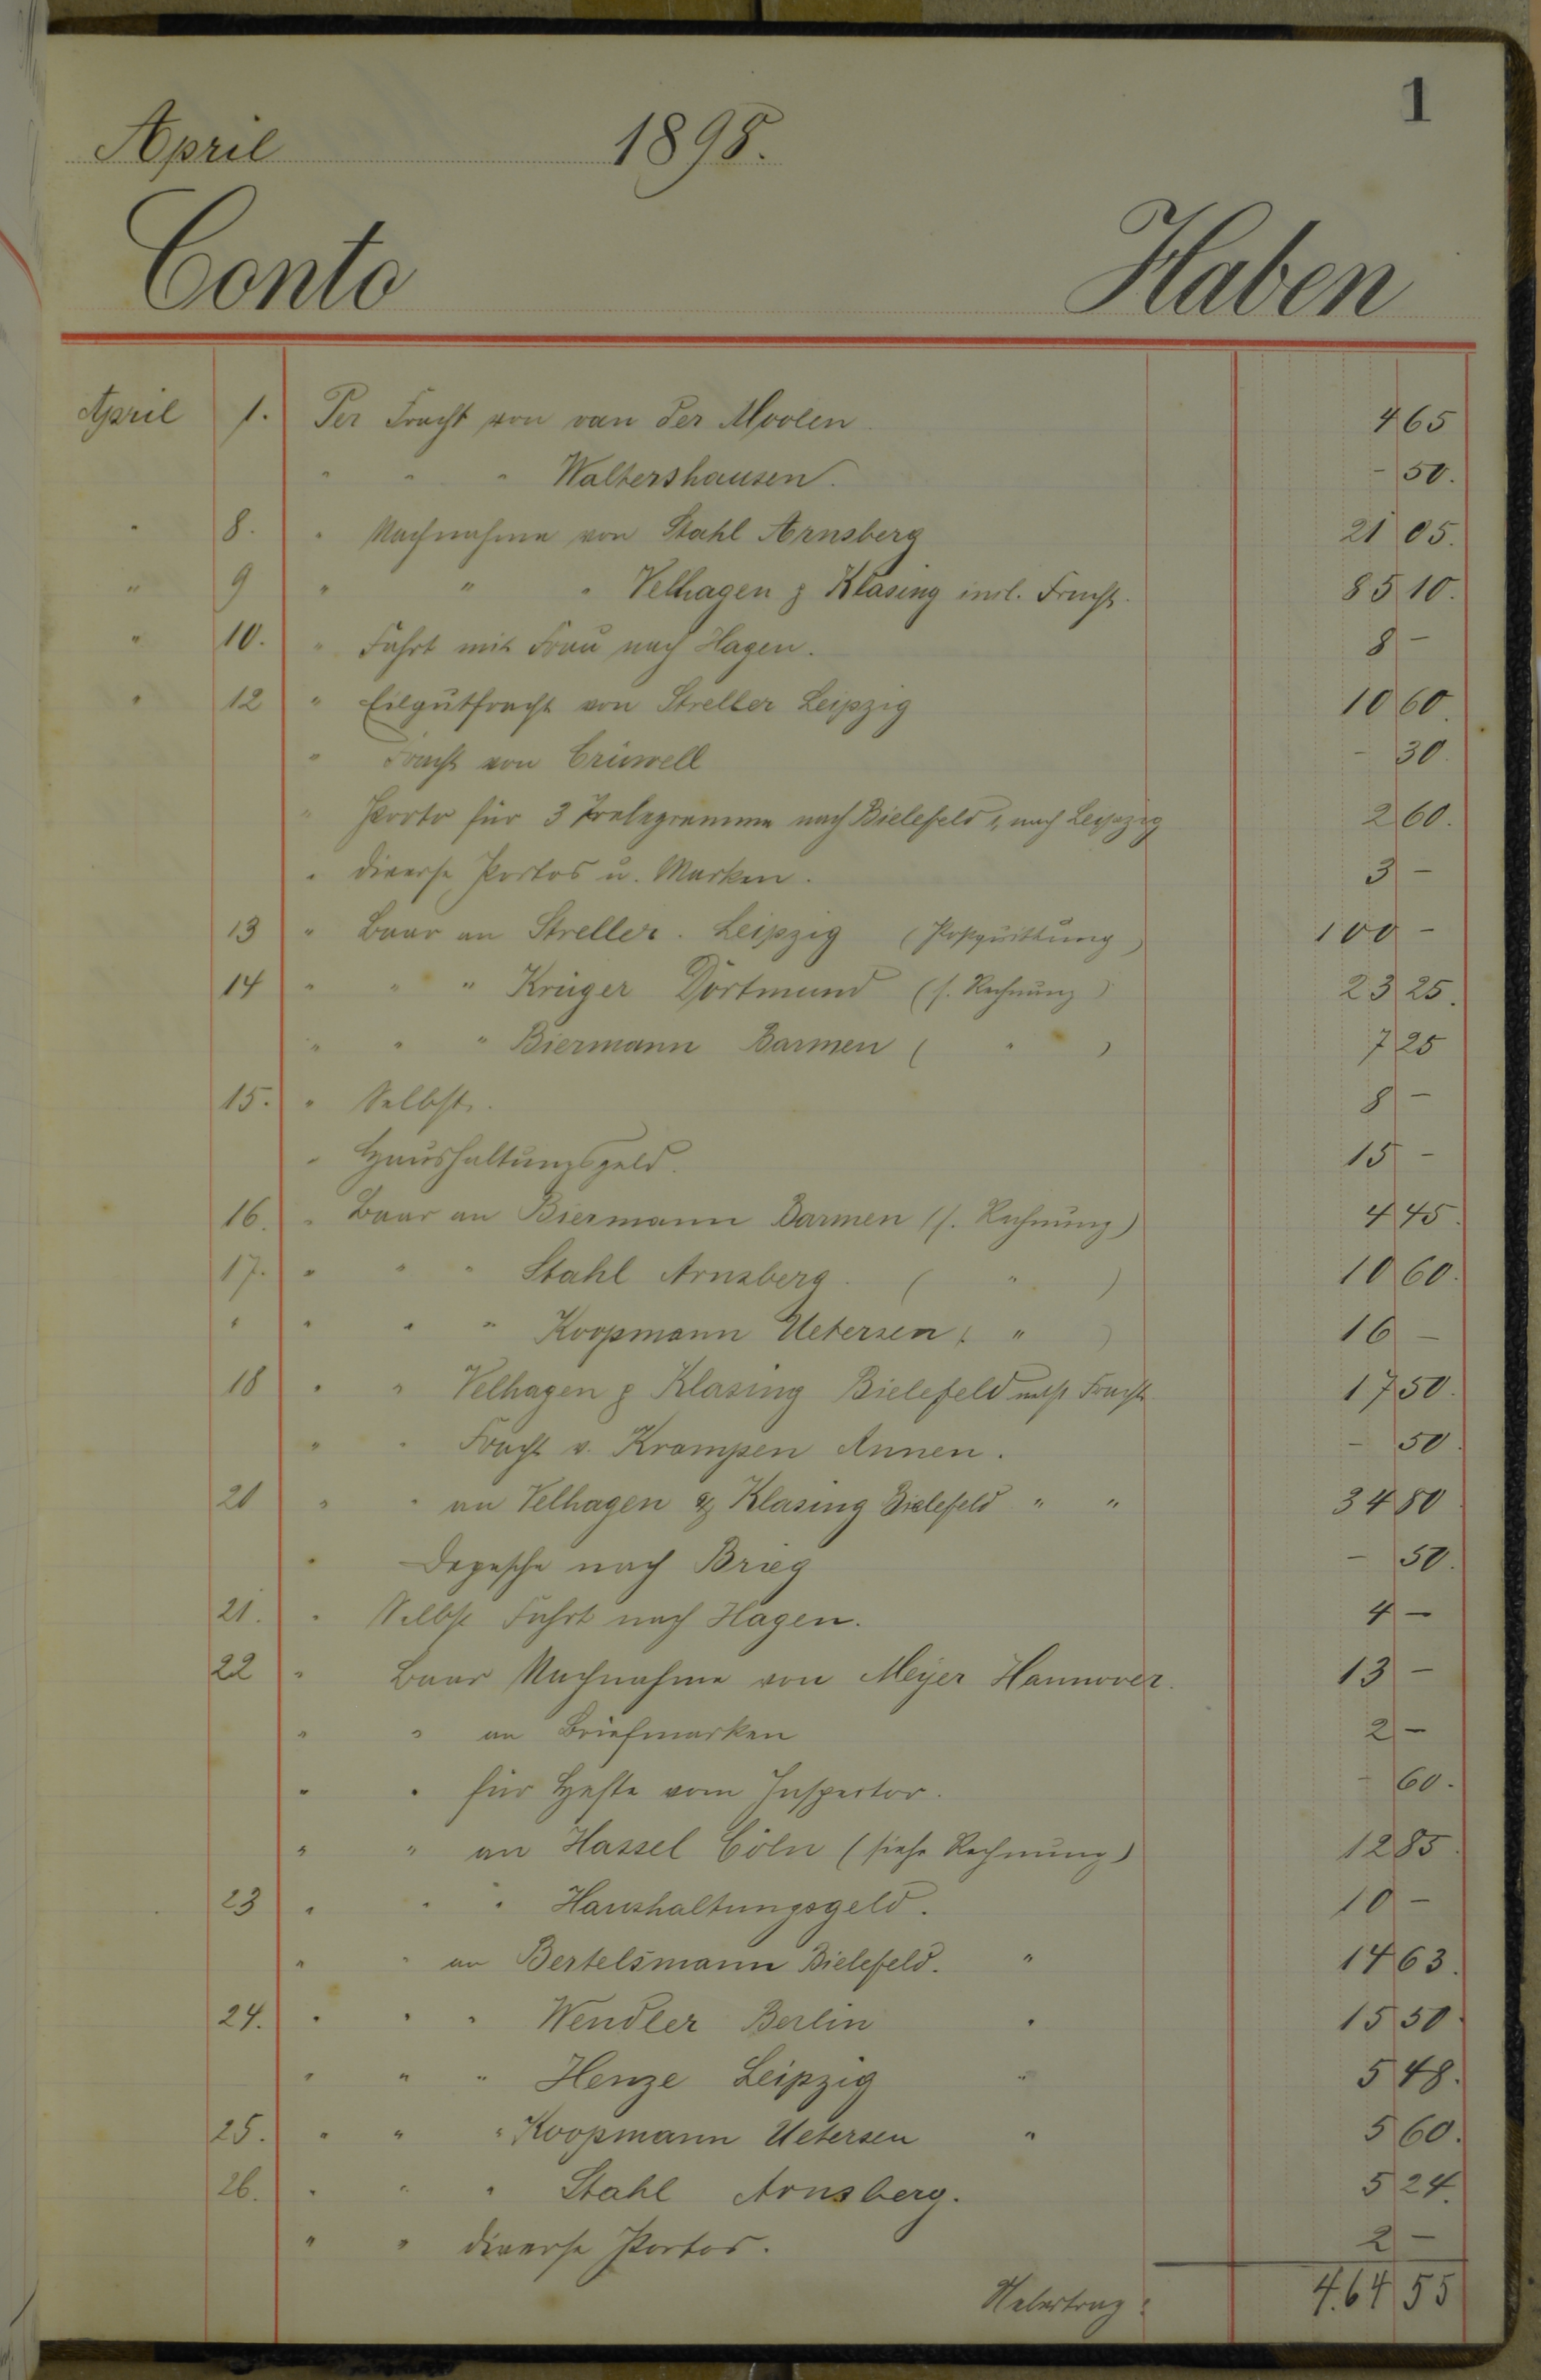 1
April 1898.
Conto Haben
April 1. Per Fracht von van der Moolen. 4 65
" " " Waltershausen. - 50.
" 8. " Nachnahme von Stahl Arnsberg 21 05.
" 9 " " " Velhagen & Klasing incl. Fracht. 85 10.
" 10. " Fahrt mit Frau nach Hagen. 8 -
" 12 " Eilgutfracht von Streller Leipzig 10 60.
" Fracht von Crüwell - 30.
" Porto für 3 Telegramme nach Bielefeld nach Leipzig 2 60.
" diverse Portos u. Marken. 3 -
13 " Baar an Streller. Leipzig (Postquittung) 100 -
14 " " " Krüger Dortmund (s. Rechnung) 23 25.
" " " Biermann Barmen ( " ) 7 25
15. " Selbst. 8 -
" Haushaltungsgeld. 15 -
16. " Baar an Biermann Barmen (s. Rechnung) 4 45.
17. " " " Stahl Arnsberg. ( " ) 10 60.
" " " " Koopmann Uetersen ( " ) 16 -
18 " " Velhagen & Klasing Bielefeld nebst Fracht 17 50.
" " Fracht v. Krampen Annen. - 50.
20 " " an Velhagen & Klasing Bielefeld " " 34 80
" Depesche nach Brieg - 50.
21. " Selbst Fahrt nach Hagen. 4 -
22 " Baar Nachnahme von Meyer Hannover. 13 -
" " an Briefmarken 2 -
" " für Hefte vom Inspector. - 60.
" " an Hassel Cöln (siehe Rechnung) 12 85.
23 " " " Haushaltungsgeld. 10 -
" " an Bertelsmann Bielefeld. " 14 63.
24. " " " Wendler Berlin " 15 50.
" " " Henze Leipzig " 5 48.
25. " " " Koopmann Uetersen " 5 60.
26. " " " Stahl Arnsberg. 5 24.
" " diverse Portos. 2 -
Uebertrag: 464 55